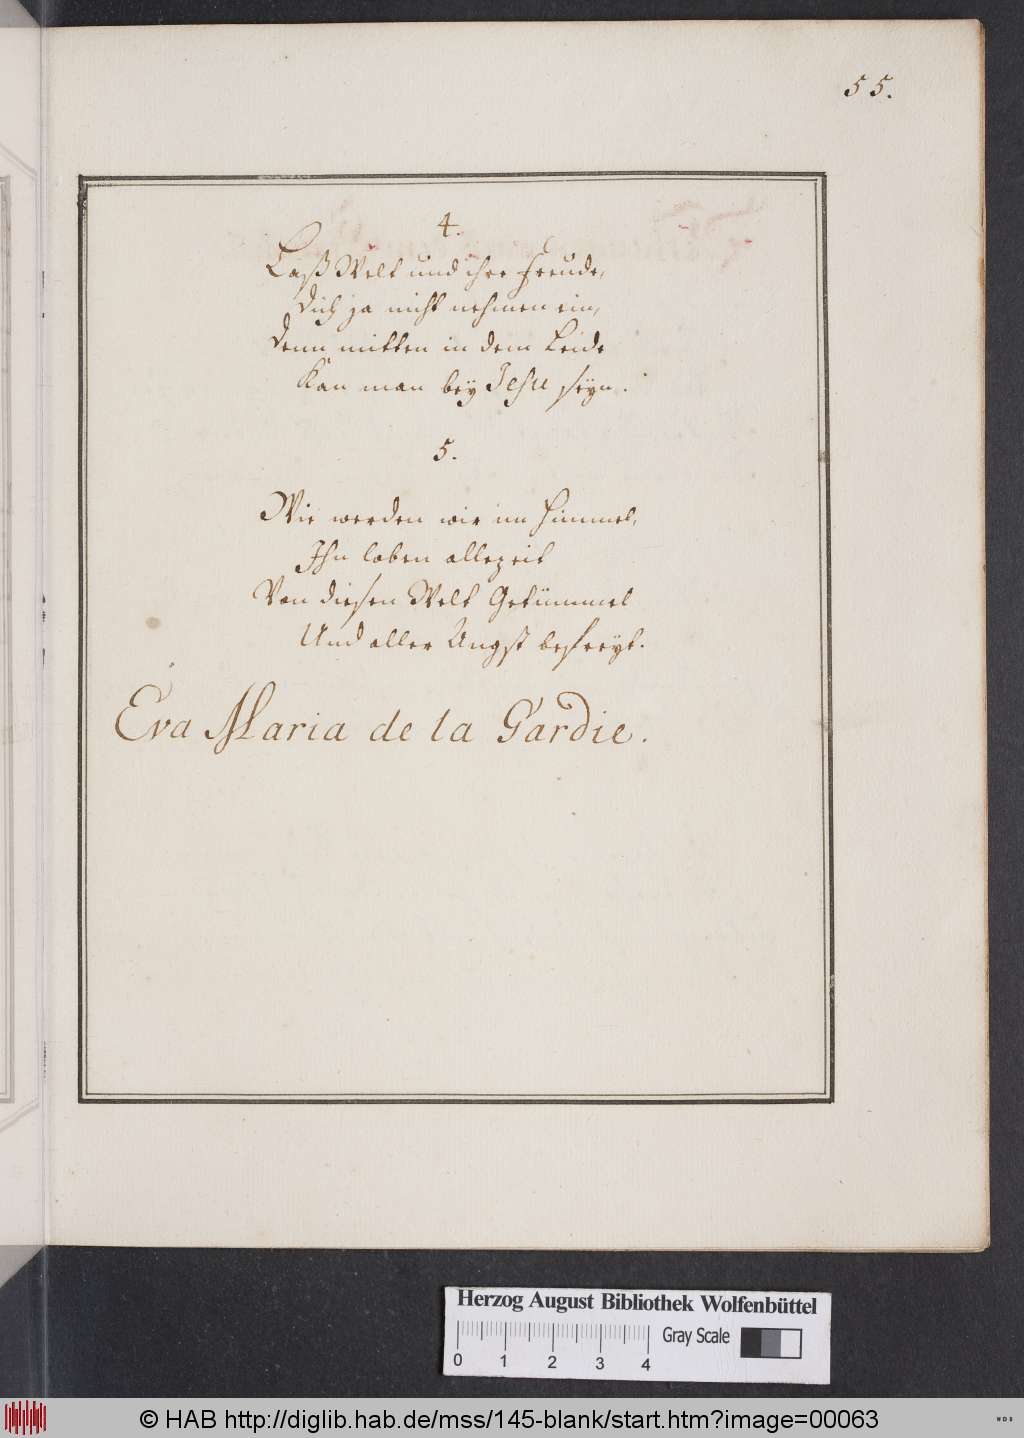 55.
4.
Laß Welt und ihre Freude,
dich ja nicht nehmen ein,
denn mitten in dem Leide
Kan man bey Jesu seyn.
5.
Wie werden wir im Himmel,
Ihn loben allezeit
Von diesen Welt Getümmel
Und aller Angst befreyt.
Eva Maria de la Gardie.
Herzog August Bibliothek Wolfenbüttel
Gray Scale
0 1 2 3 4
© HAB http://diglib.hab.de/mss/145-blank/start.htm?image=00063